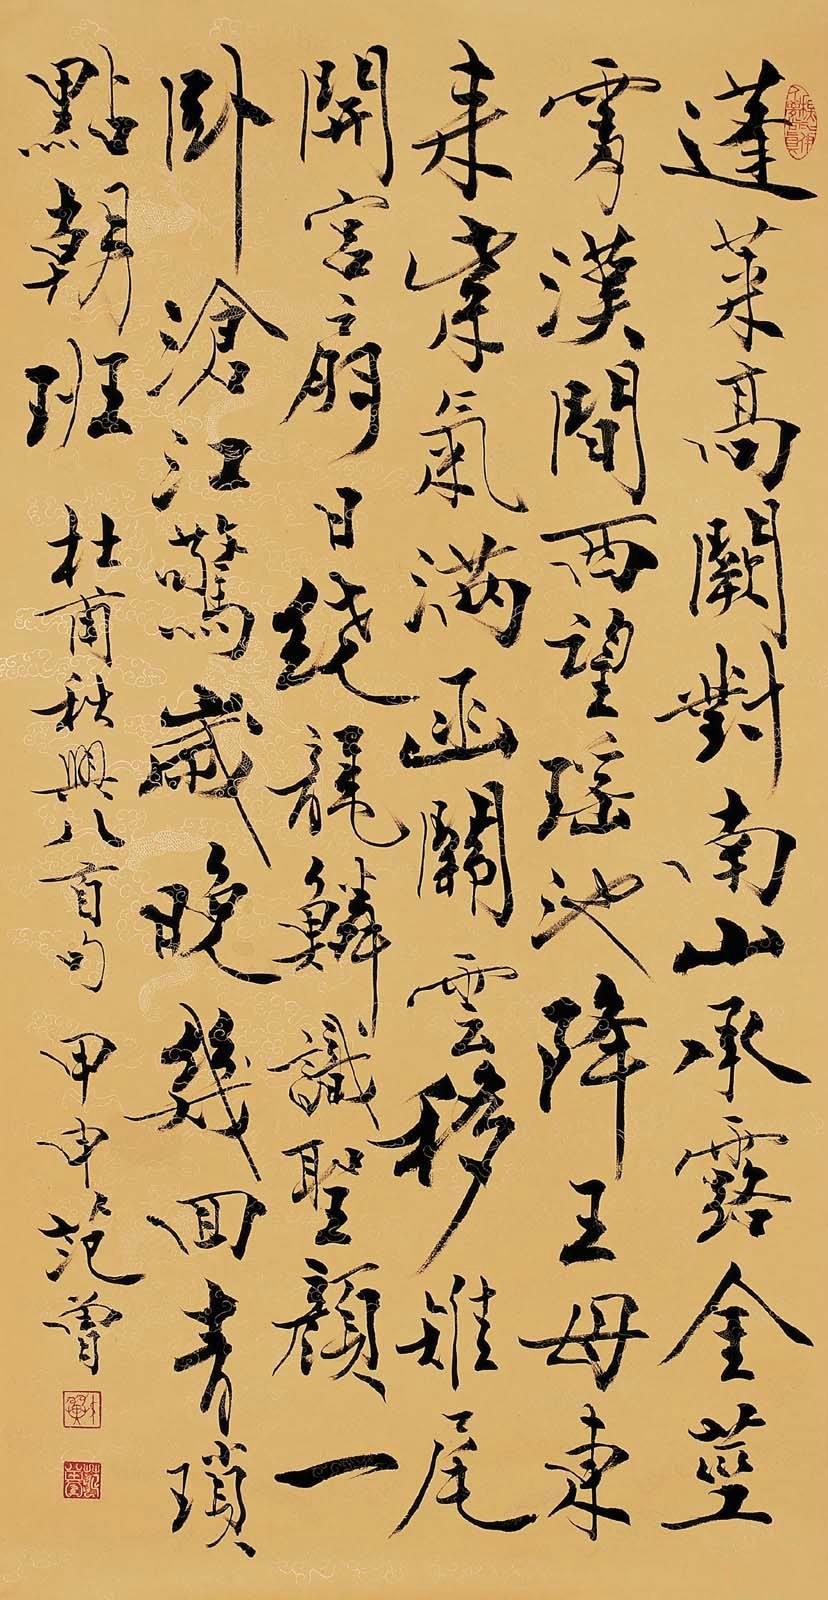 蓬莱高闕對南山承露金莖
霄漢間西望瑶池降王母東
来紫氣满函關雲移雉尾
開宫扇日繞龍鱗識聖顔一
卧滄江驚歲晚幾回青瑣
點朝班
杜甫秋興八首句 甲申 范曾